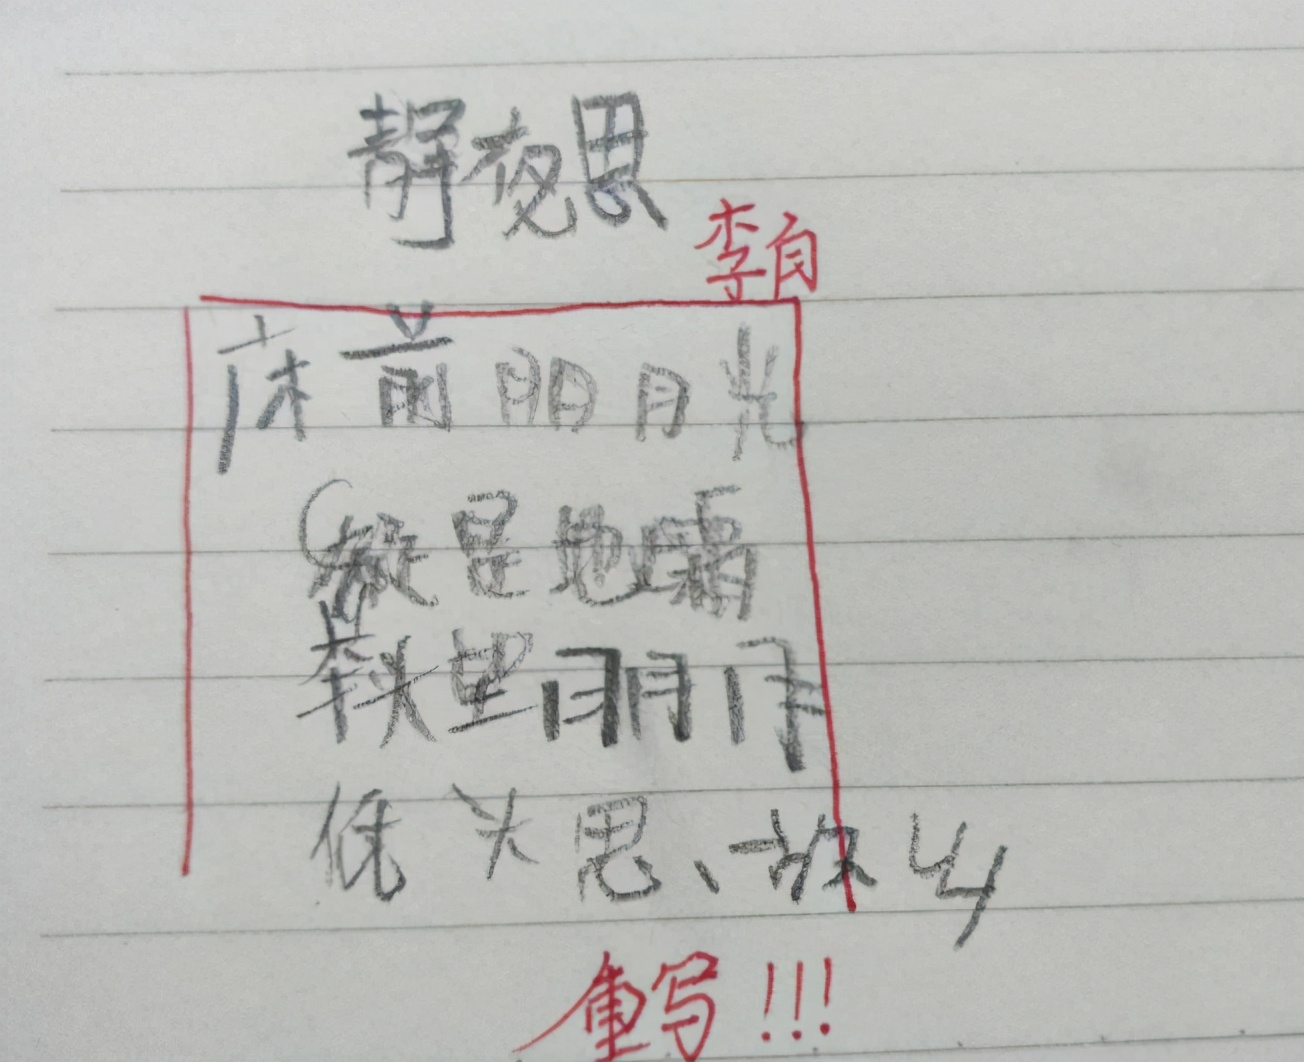 静夜思
李白
床前明月光
疑是地霜
举头望明月
低头思、故乡
重写!!!